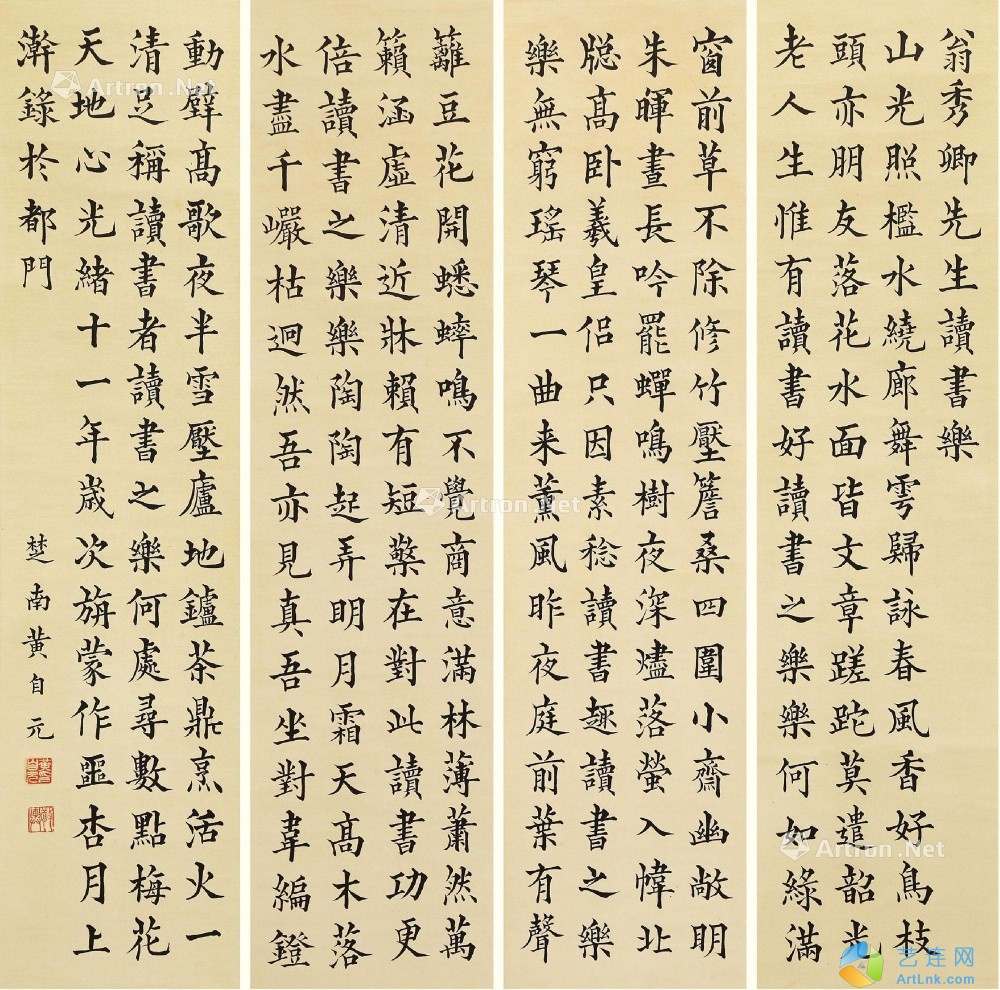 翁秀卿先生讀書樂
山光照檻水繞廊舞雩歸詠春風香好鳥枝
頭亦朋友落花水面皆文章蹉跎莫遣韶光
老人生惟有讀書好讀書之樂樂何如綠滿
窗前草不除修竹壓簷桑四圍小齋幽敞明
朱暉晝長吟罷蟬鳴樹夜深燼落螢入幃北
牕高卧羲皇侣只因素稔讀書趣讀書之樂
樂無窮瑤琴一曲来薰風昨夜庭前葉有聲
籬豆花開蟋蟀鳴不覺商意滿林薄蕭然萬
籟涵虛清近牀賴有短檠在對此讀書功更
倍讀書之樂樂陶陶起弄明月霜天高木落
水盡千巖枯迥然吾亦見真吾坐對韋編鐙
動壁高歌夜半雪壓廬地鑪茶鼎烹活火一
清足稱讀書者讀書之樂何處尋數點梅花
天地心光緒十一年歲次旃蒙作噩杏月上
澣錄於都門
楚南黃自元
Artron.Net
Artron.Net
Artron.Net
艺连网
ArtLnk.com